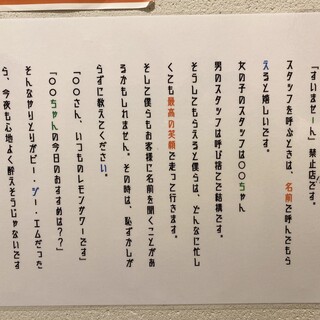 「すいませーん」禁止店です。
スタッフを呼ぶときは、名前で呼んでもら
えると嬉しいです。
女の子のスタッフは〇〇ちゃん
男のスタッフは呼び捨てで結構です。
そうしてもらえると僕らは、どんなに忙し
くても最高の笑顔で走って行きます。
そして僕らもお客様に名前を聞くことがあ
るかもしれません。その時は、恥ずかしが
らずに教えてください。
「〇〇さん、いつものレモンサワーです」
「〇〇ちゃんの今日のおすすめは？？」
そんなやりとりがビー・ジー・エムだった
ら、今夜も心地よく酔えそうじゃないです